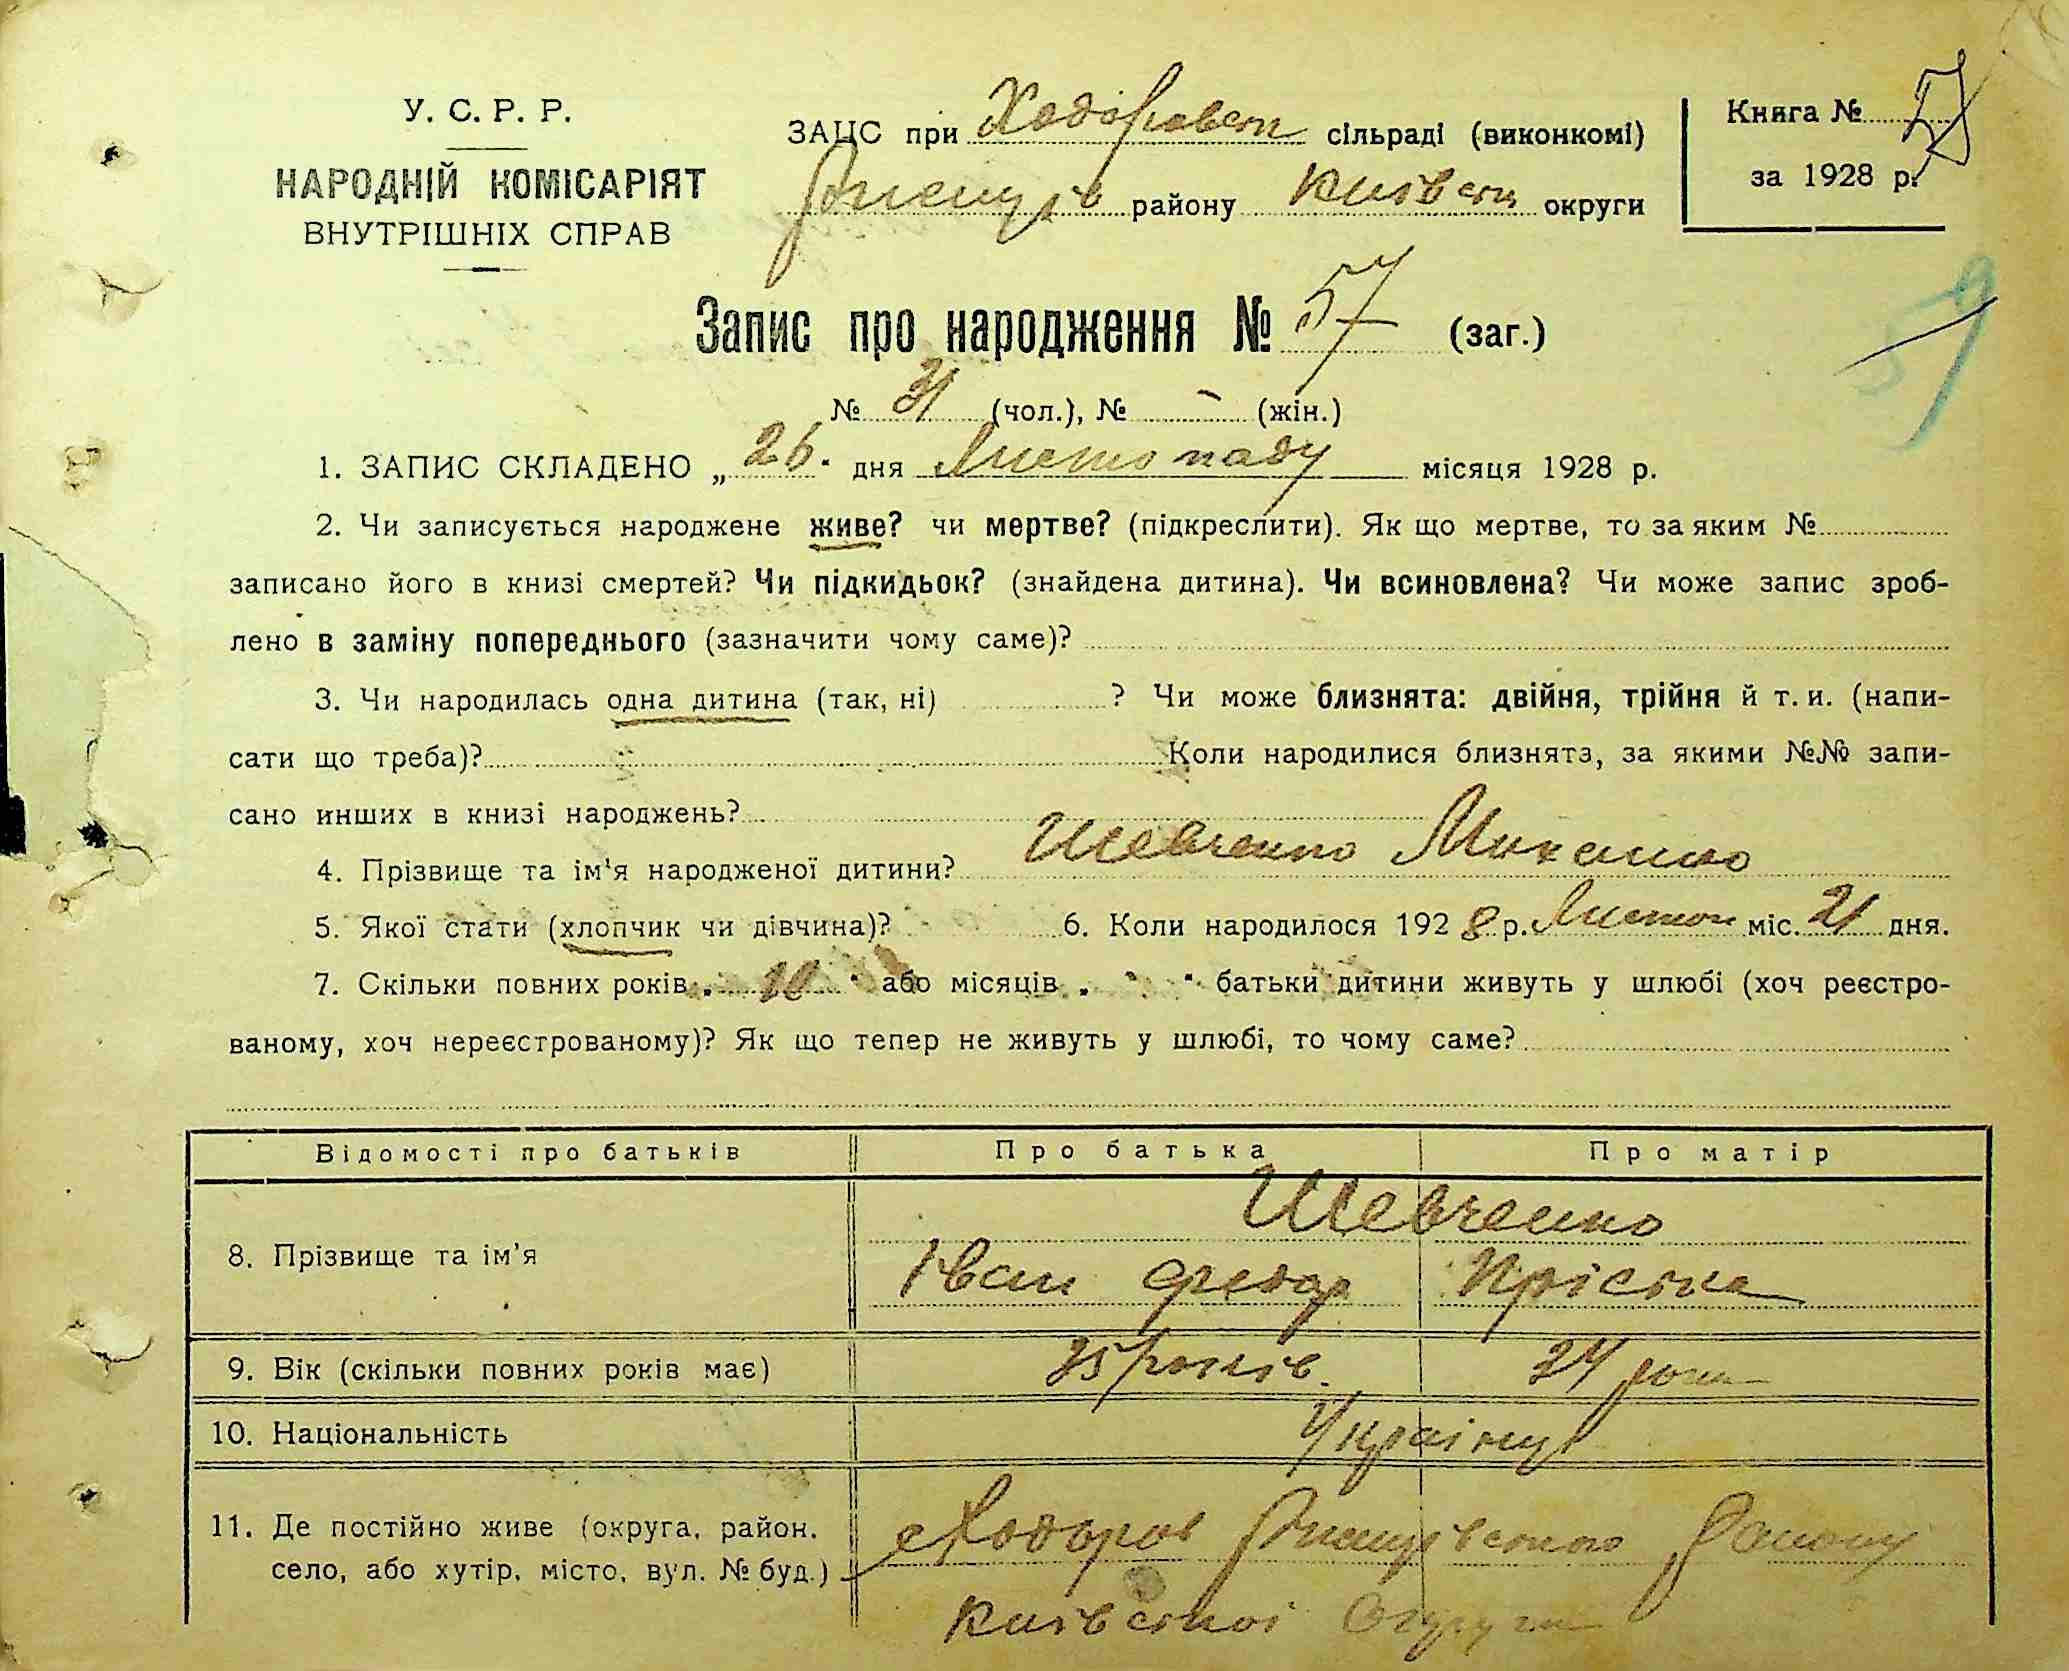 У. С. Р. Р.
НАРОДНІЙ КОМІСАРІЯТ
ВНУТРІШНІХ СПРАВ
ЗАЦС при Ходорівськ сільраді (виконкомі)
Ржищів району Київськ округи
Книга №
за 1928 р.
Запис про народження № 57 (заг.)
№ 31 (чол.), № – (жін.)
59
1. ЗАПИС СКЛАДЕНО „ 26. дня Листопаду місяця 1928 р.
2. Чи записується народжене живе? чи мертве? (підкреслити). Як що мертве, то за яким №
записано його в книзі смертей? Чи підкидьок? (знайдена дитина). Чи всиновлена? Чи може запис зроб-
лено в заміну попереднього (зазначити чому саме)?
3. Чи народилась одна дитина (так, ні) ? Чи може близнята: двійня, трійня й т. и. (напи-
сати що треба)? Коли народилися близнята, за якими №№ запи-
сано инших в книзі народжень?
4. Прізвище та ім'я народженої дитини? Шевченко Микола
5. Якої стати (хлопчик чи дівчина)? 6. Коли народилося 1928 р. Листоп міс. 21 дня.
7. Скільки повних років „ 10 " або місяців „ " батьки дитини живуть у шлюбі (хоч реєстро-
ваному, хоч нереєстрованому)? Як що тепер не живуть у шлюбі, то чому саме?
Відомості про батьків Про батька Про матір
Шевченко
8. Прізвище та ім'я Іван Федор Пріська
9. Вік (скільки повних років має) років. роки
10. Національність Українці
11. Де постійно живе (округа, район, с Ходорів Ржищівського Району
село, або хутір, місто, вул. № буд.) Київської Округи